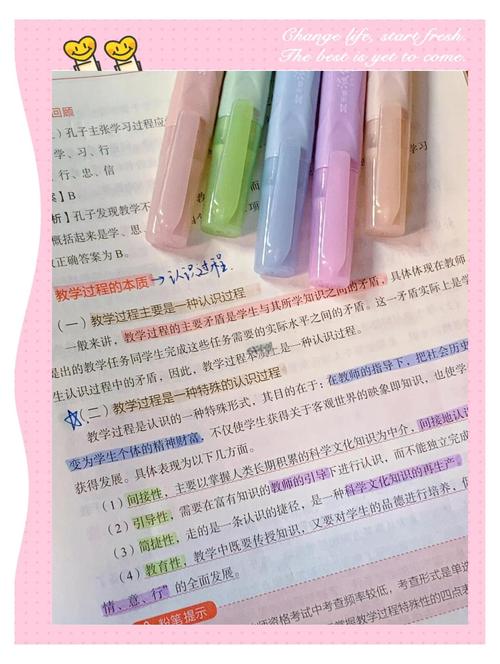 Change life, start fresh.
The best is yet to come.
回顾
）孔子主张学习过程应
学、习、行
行、忠、信
】B
析】孔子发现教学不
概括起来是学、思、
正确答案为B。
教学过程的本质→认识过程
（一）教学过程主要是一种认识过程
一般来讲，教学过程的主要矛盾是学生与其所学知识之间的矛盾，具体体现在教师
提出的教学任务同学生完成这些任务需要的实际水平之间的矛盾。这一矛盾实际上是学
生认识过程中的矛盾，因此，教学过程本质上是一种认识过程。
（二）教学过程是一种特殊的认识过程
教学过程是认识的一种特殊形式，其目的在于：在教师的指导下，把社会历史
变为学生个体的精神财富，不仅使学生获得关于客观世界的映象即知识，也使学
获得发展。具体表现为以下几方面。
（1）间接性，主要以掌握人类长期积累的科学文化知识为中介，间接地认识
（2）引导性，需要在富有知识的教师的引导下进行认识，而不能独立完成
（3）简捷性，走的是一条认识的捷径，是一种科学文化知识的再生产
（4）教育性，教学中既要传授知识，又要对学生的品德进行培养，
情、意、行”的全面发展。
粉笔提示
师资格考试中考查频率较低，考查形式是单选
掌握教学过程特殊性的四点表